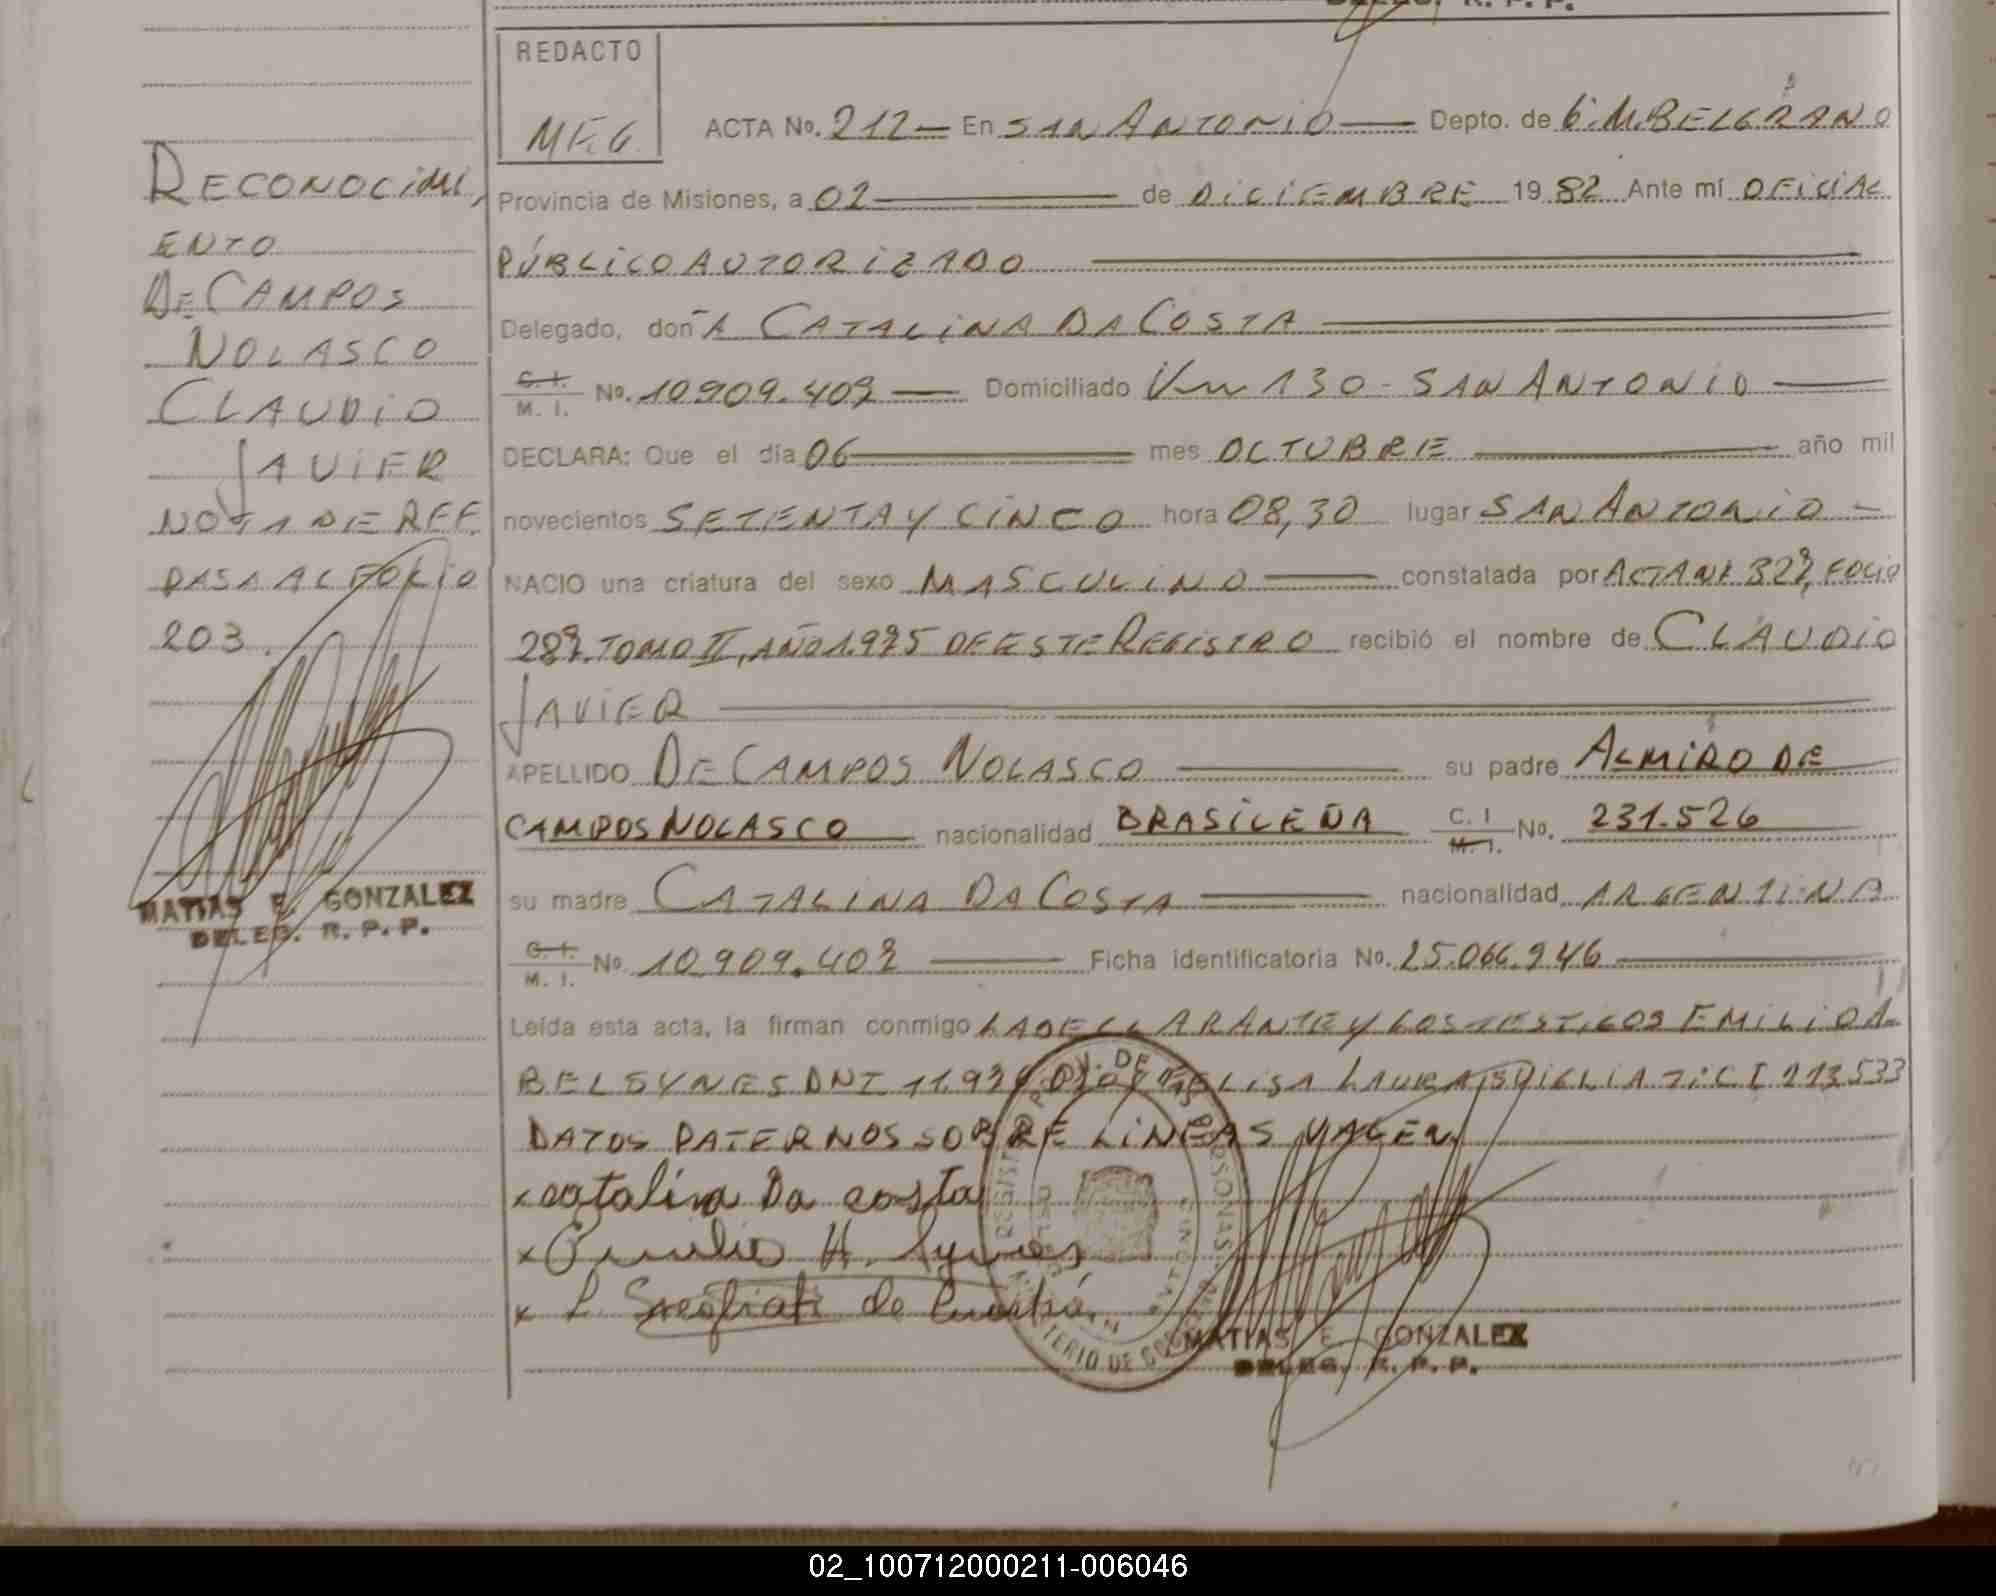 DELEG. R. P. P.
REDACTO
M.E.G.
ACTA No. 212 En SAN ANTONIO Depto. de G. M. BELGRANO
Provincia de Misiones, a 02 de DICIEMBRE 19 82 Ante mí OFICIAL
PÚBLICO AUTORIZADO
Delegado, doñA CATALINA DA COSTA
C. I. M. I. No. 10.909.407 Domiciliado Km 130 - SAN ANTONIO
DECLARA: Que el día 06 mes OCTUBRE año mil
novecientos SETENTA Y CINCO hora 08,30 lugar SAN ANTONIO
NACIO una criatura del sexo MASCULINO constatada por ACTA Nº 327, FOLIO
287, TOMO II, AÑO 1.975 DE ESTE REGISTRO recibió el nombre de CLAUDIO
JAVIER
APELLIDO DE CAMPOS NOLASCO su padre ALMIRO DE
CAMPOS NOLASCO nacionalidad BRASILEÑA C. I M. I. No. 231.526
su madre CATALINA DA COSTA nacionalidad ARGENTINA
C. I. M. I. No. 10.909.407 Ficha identificatoria No. 25.066.946
Leída esta acta, la firman conmigo LA DECLARANTE Y LOS TESTIGOS EMILIO A-
BEL SYNES DNI LAURA C I 213.533
DATOS PATERNOS SOBRE LINEAS VALEN
x catalina Da costa
x Emilio A. Synes
x L. de
MATIAS E. GONZALEZ
DELEG. R. P. P.
RECONOCIMI
ENTO
DE CAMPOS
NOLASCO
CLAUDIO
JAVIER
NOTA DE REF.
PASA AL FOLIO
203.
MATIAS E. GONZALEZ
DELEG. R. P. P.
02_100712000211-006046